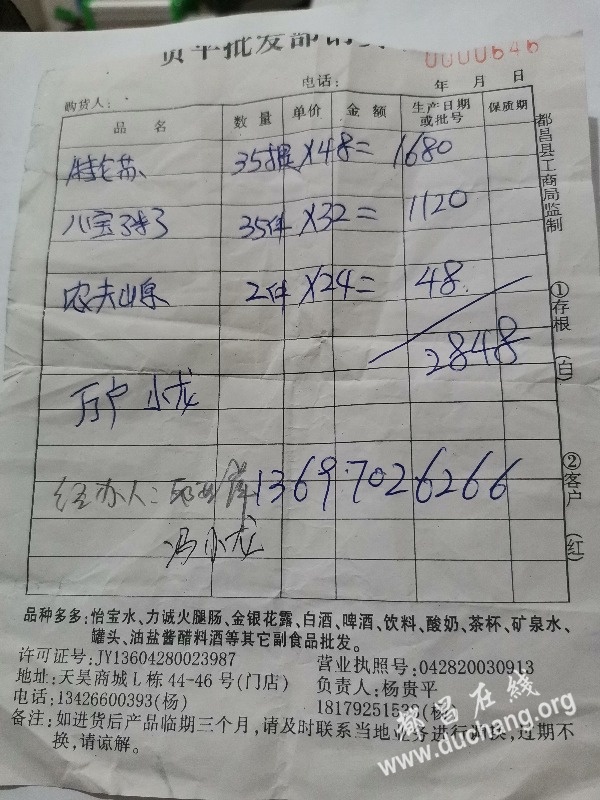 贵平批发部销货
0000646
电话： 年 月 日
购货人：
品名 数量 单价 金额 生产日期或批号 保质期
特仑苏 35提 X48= 1680
八宝粥 35件 X32= 1120
农夫山泉 2件 X24= 48
2848
万户 小龙
经办人： 13697026266
冯小龙
都昌县工商局监制
①存根(白)
②客户(红)
品种多多：怡宝水、力诚火腿肠、金银花露、白酒、啤酒、饮料、酸奶、茶杯、矿泉水、
罐头、油盐酱醋料酒等其它副食品批发。
许可证号：JY13604280023987 营业执照号：042820030913
地址：天昊商城L栋44-46号(门店) 负责人：杨贵平
电话：13426600393(杨)
备注：如进货后产品临期三个月，请及时联系当地业务进行调换，过期不
换，请谅解。
都昌在線
www.duchang.org